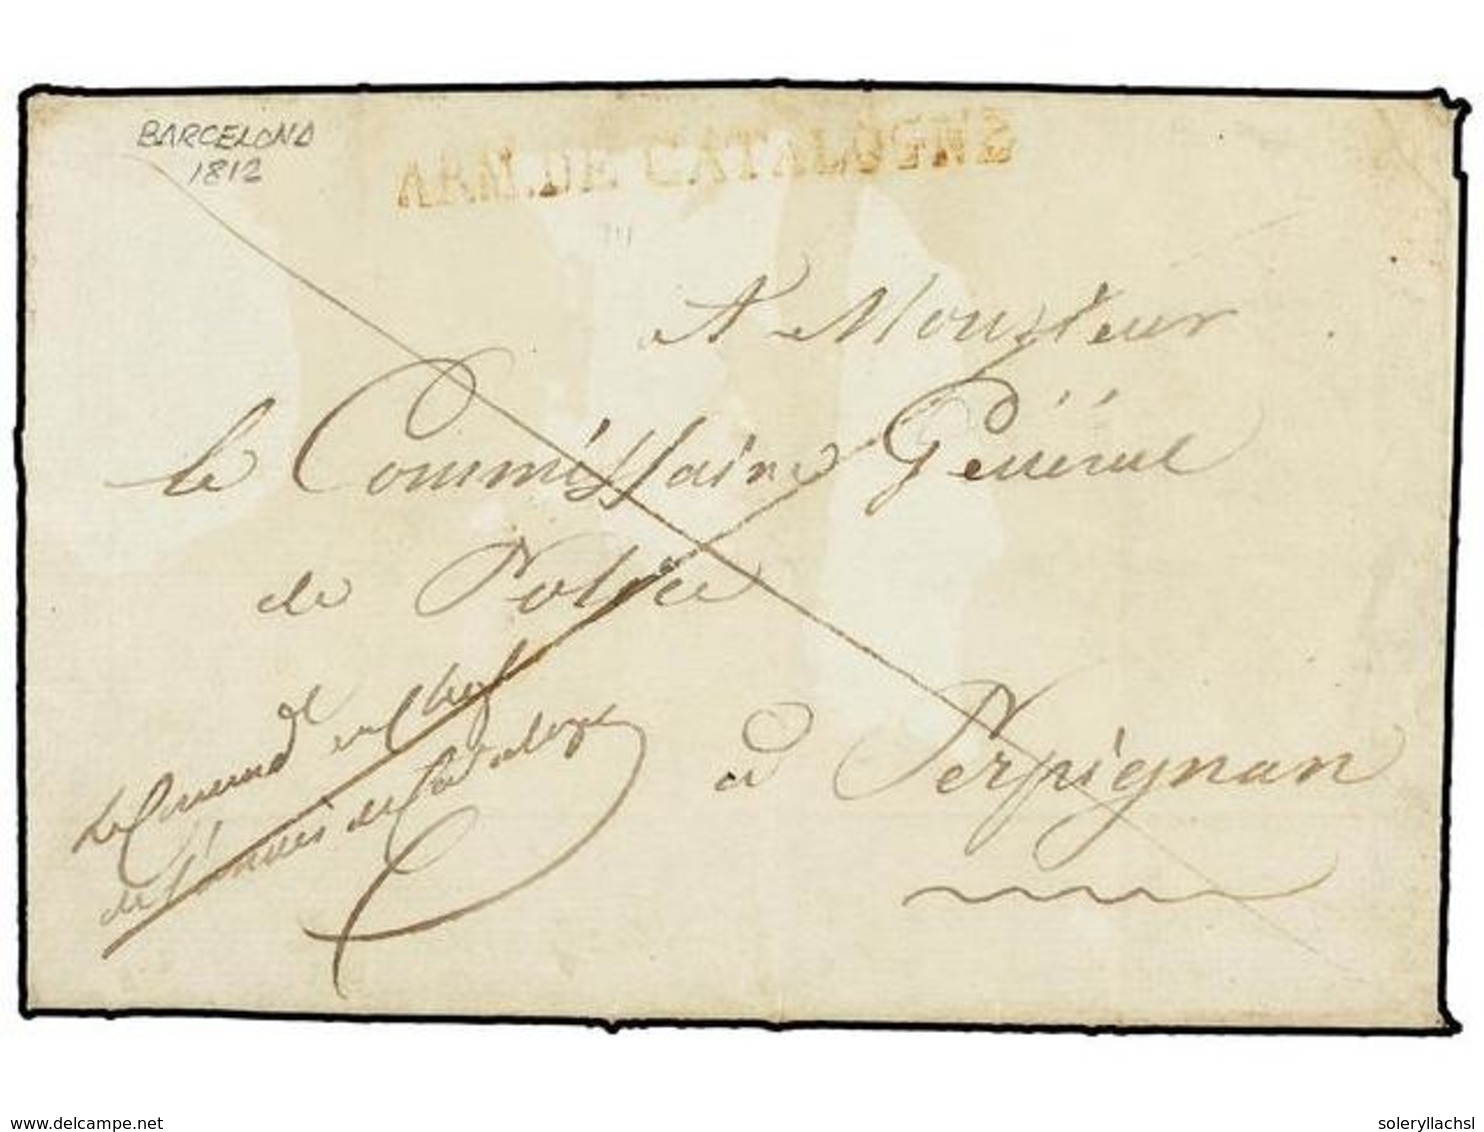 BARCELONA
1812
ARM. DE CATALOGNE
A Monsieur
le Commissaire Général
de Police
à Perpignan
Le Command en Chef
de l'armée de Catalogne
www.delcampe.net
soleryllachsl